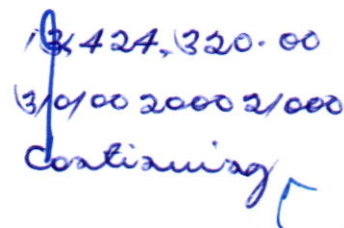 13,424,320.00
310100200021000
Continuing